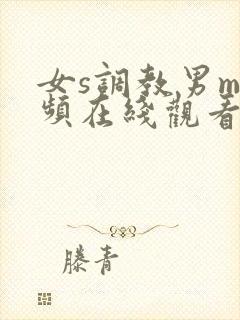 女s調教男m
頻在綫觀看
滕青